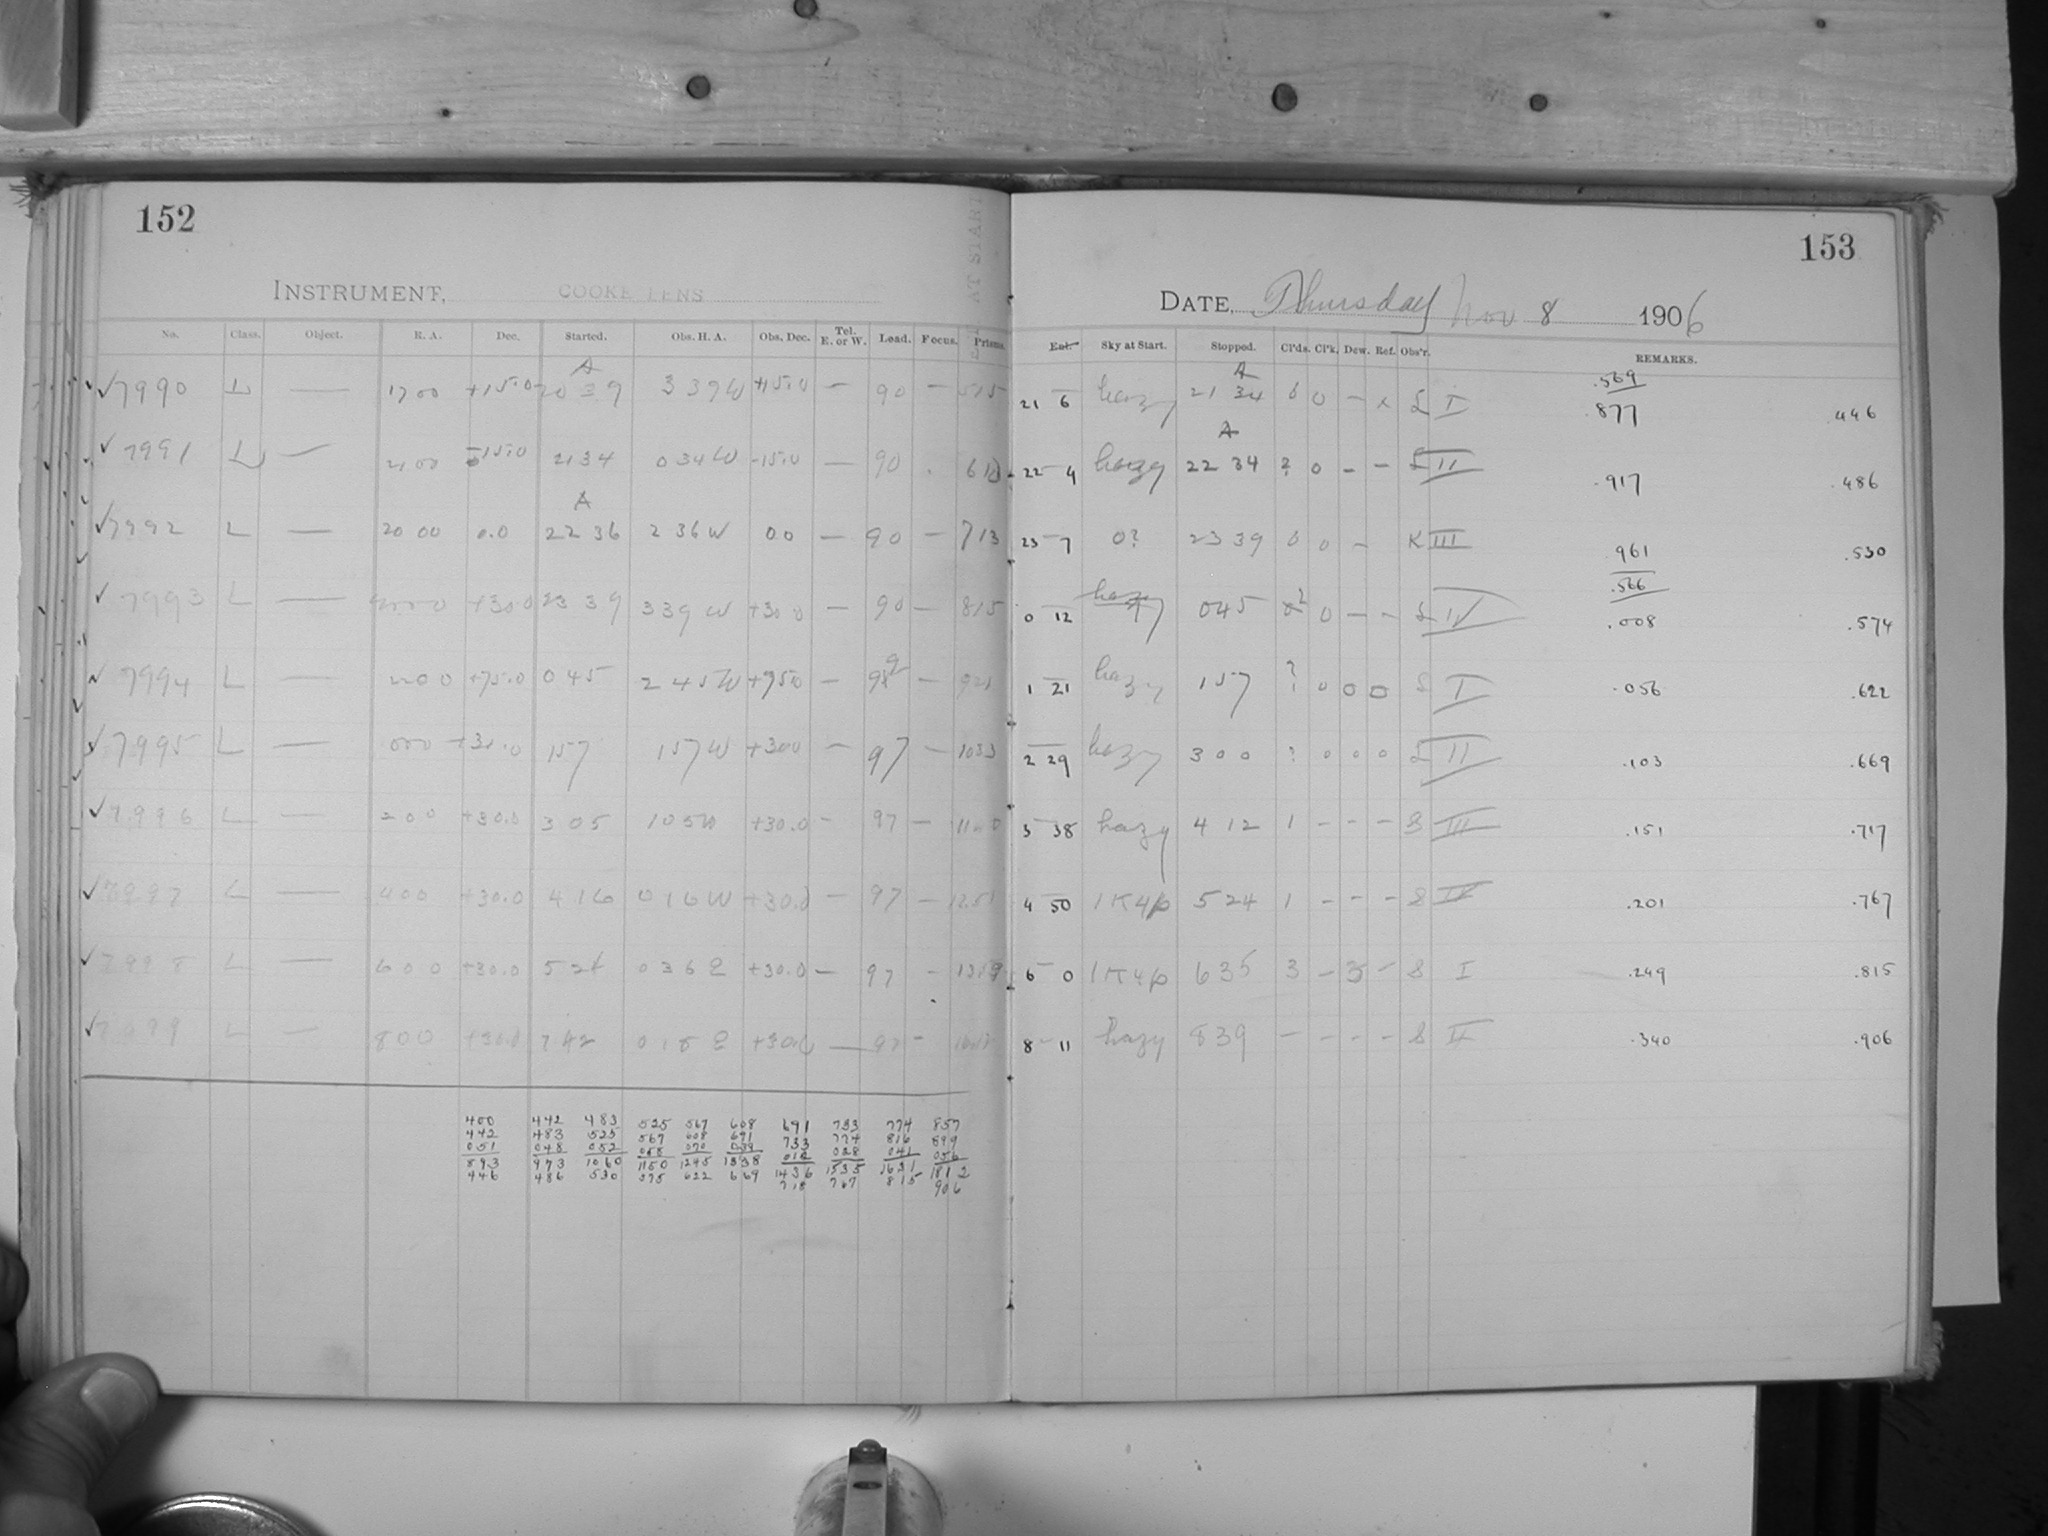 152
INSTRUMENT, COOKE LENS
No. Class. Object. R. A. Dec. Started. Obs. H. A. Obs. Dec. Tel. E. or W. Load. Focus. Prisms.
7990 L — +15.0 20 39 3 39 W +15.0 — 90 — 515
7991 L — 21 00 -15.0 21 34 0 34 W -15.0 — 90
7992 L — 20 00 0.0 22 36 2 36 W 0.0 — 90 — 713
7993 L — +30.0 23 39 3 39 W +30.0 — 90 — 815
7994 L — +75.0 0 45 2 45 W +75.0 —
7995 L — 000 +30.0 1 57 1 57 W +300 — 97 — 1033
7996 L — 200 +30.0 3 05 1 05 W +30.0 — 97 —
7997 L — 400 +30.0 4 16 0 16 W +30.0 — 97 — 1251
7998 L — 600 +30.0 5 24 0 36 E +30.0 — 97 — 1359
7999 L — 800 +30.0 7 42 0 18 E +30.0 — 97 —
400 442 483 525 567 608 691 733 774 857
442 483 525 567 608 691 733 774 816 899
051 048 052 058 070 039 012 028 041 056
893 973 1060 1150 1245 1338 1436 1535 1631 1812
446 486 530 575 622 669 718 767 815 906
153
DATE, Thursday Nov 8 1906
Ext. Sky at Start. Stopped. Cl'ds. Cl'k. Dew. Ref. Obs'r. REMARKS.
.569
21 6 hazy 21 34 0 0 — I .877 .446
22 4 hazy 22 34 ? 0 — — II .917 .486
23 7 0? 23 39 0 0 — III .961 .530
.566
0 12 hazy 0 45 0 — — IV .008 .574
1 21 hazy 1 57 ? 0 0 0 I .056 .622
2 29 hazy 3 00 ? 0 0 0 II .103 .669
3 38 hazy 4 12 1 - - - S III .151 .717
4 50 1K4p 5 24 1 - - - S IV .201 .767
6 0 1K4p 6 35 3 - 3 - S I .249 .815
8 11 hazy 8 39 - - - - S II .340 .906